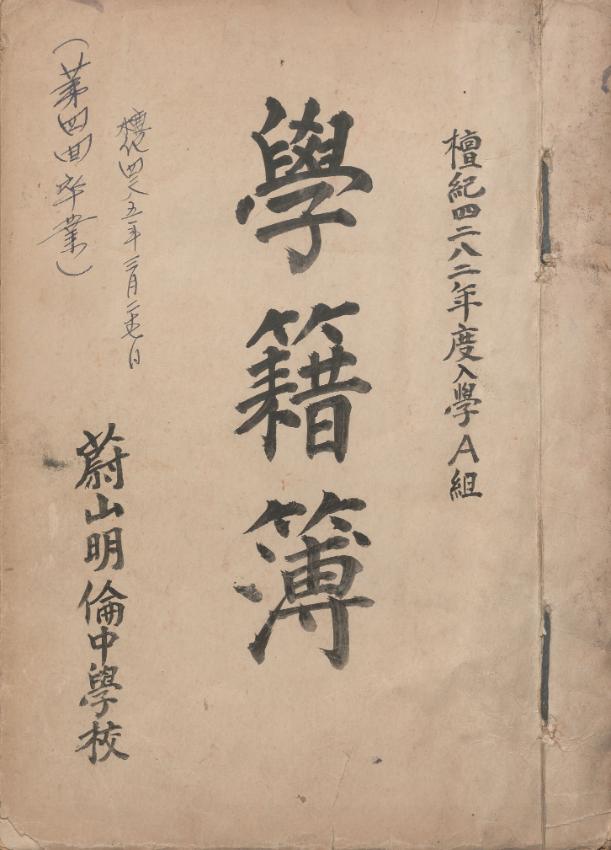 檀紀四二八二年度入學A組
學籍簿
檀紀四二八五年三月二十七日
(第四回卒業)
蔚山明倫中學校